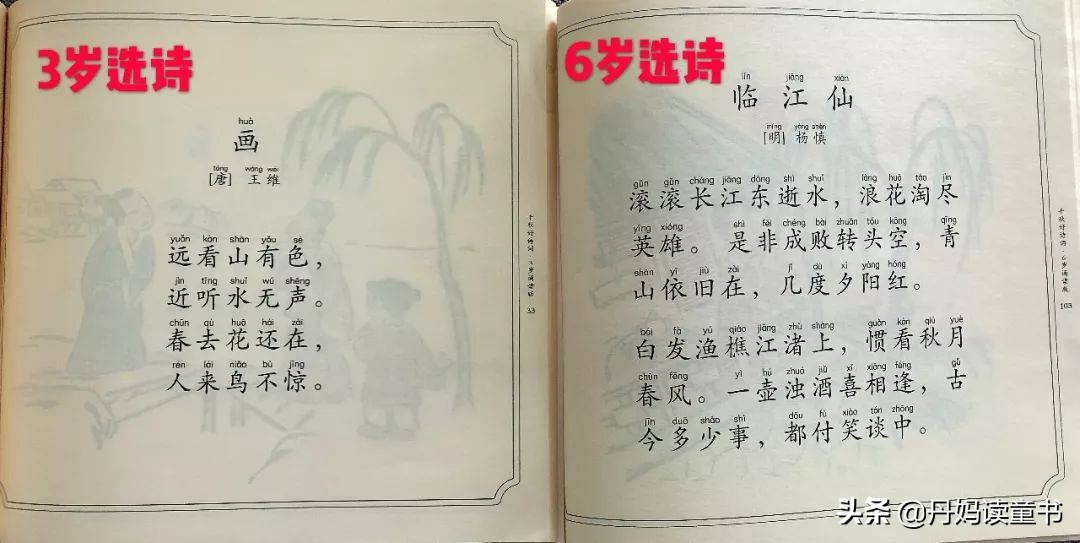 3岁选诗
huà
画
táng wáng wéi
[唐] 王维
yuǎn kàn shān yǒu sè
远看山有色，
jìn tīng shuǐ wú shēng
近听水无声。
chūn qù huā hái zài
春去花还在，
rén lái niǎo bù jīng
人来鸟不惊。
千秋好诗词·3岁诵读版
33
6岁选诗
lín jiāng xiān
临江仙
míng yáng shèn
[明] 杨慎
gǔn gǔn cháng jiāng dōng shì shuǐ làng huā táo jìn
滚滚长江东逝水，浪花淘尽
yīng xióng shì fēi chéng bài zhuǎn tóu kōng qīng
英雄。是非成败转头空，青
shān yī jiù zài jǐ dù xī yáng hóng
山依旧在，几度夕阳红。
bái fà yú qiáo jiāng zhǔ shàng guàn kàn qiū yuè
白发渔樵江渚上，惯看秋月
chūn fēng yì hú zhuó jiǔ xǐ xiāng féng gǔ
春风。一壶浊酒喜相逢，古
jīn duō shǎo shì dōu fù xiào tán zhōng
今多少事，都付笑谈中。
千秋好诗词·6岁诵读版
103
头条 @丹妈读童书